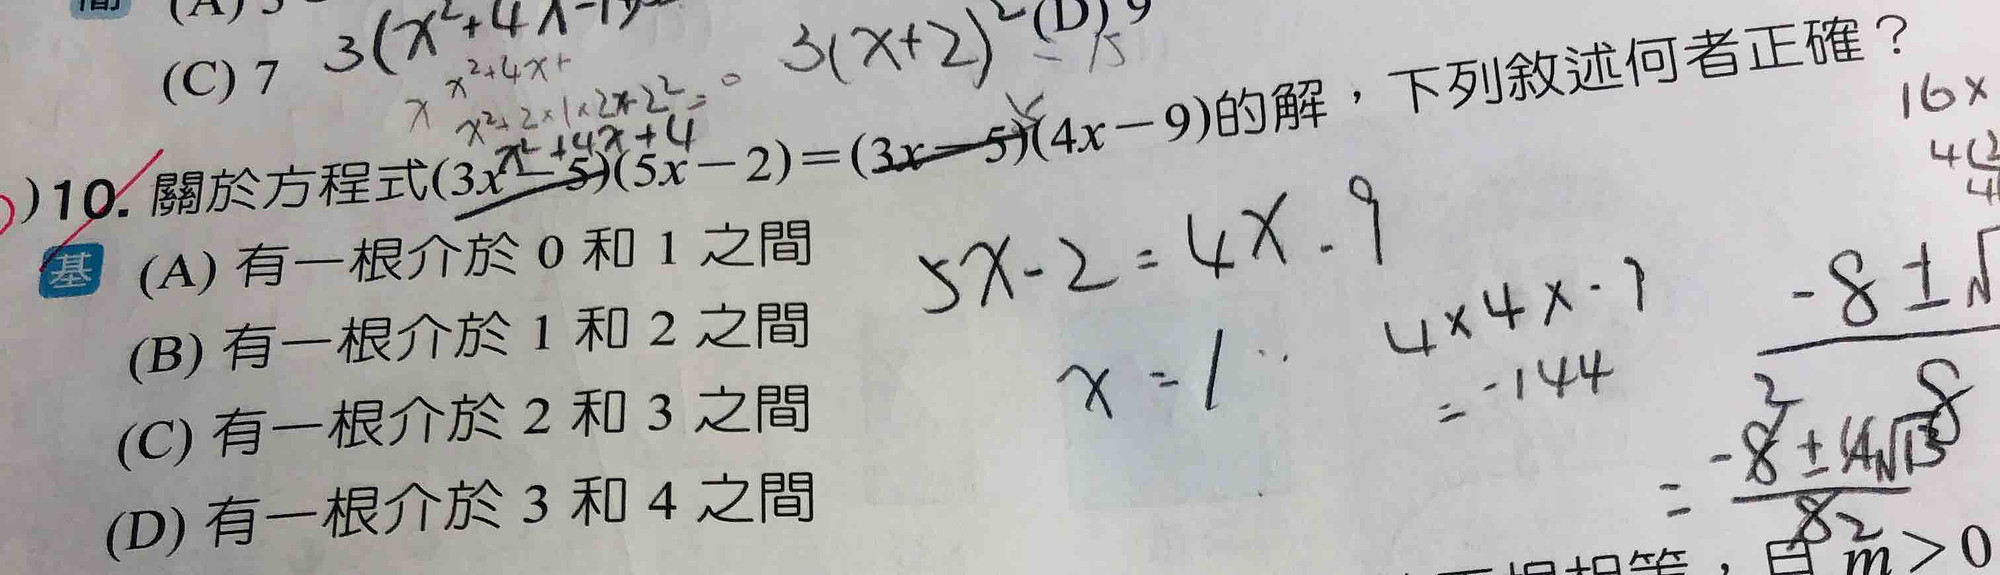 (C) 7 3(x²+4x-1)
3(x+2)² = 15
x²+4x+
x²+2×1×2x+2²=0
x²+4x+4
10. 關於方程式(3x-5)(5x-2)=(3x-5)(4x-9)的解,下列敘述何者正確?
基 (A) 有一根介於 0 和 1 之間
(B) 有一根介於 1 和 2 之間
(C) 有一根介於 2 和 3 之間
(D) 有一根介於 3 和 4 之間
5x-2=4x-9
x=1
4×4×-9
=-144
16x
-8±√
8
-8±4√13
8
m>0